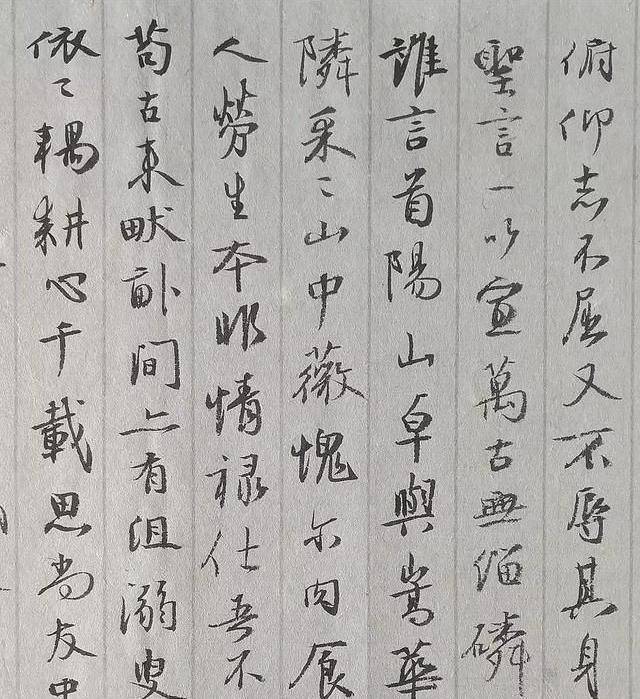 俯仰志不屈又不辱其身
聖言一以宣萬古無缁磷
誰言首陽山卓與嵩華
隣采〻山中薇愧尔肉食
人勞生本非情禄仕吾不
苟古来畎畝間亦有沮溺叟
依〻耦耕心千載思尚友中